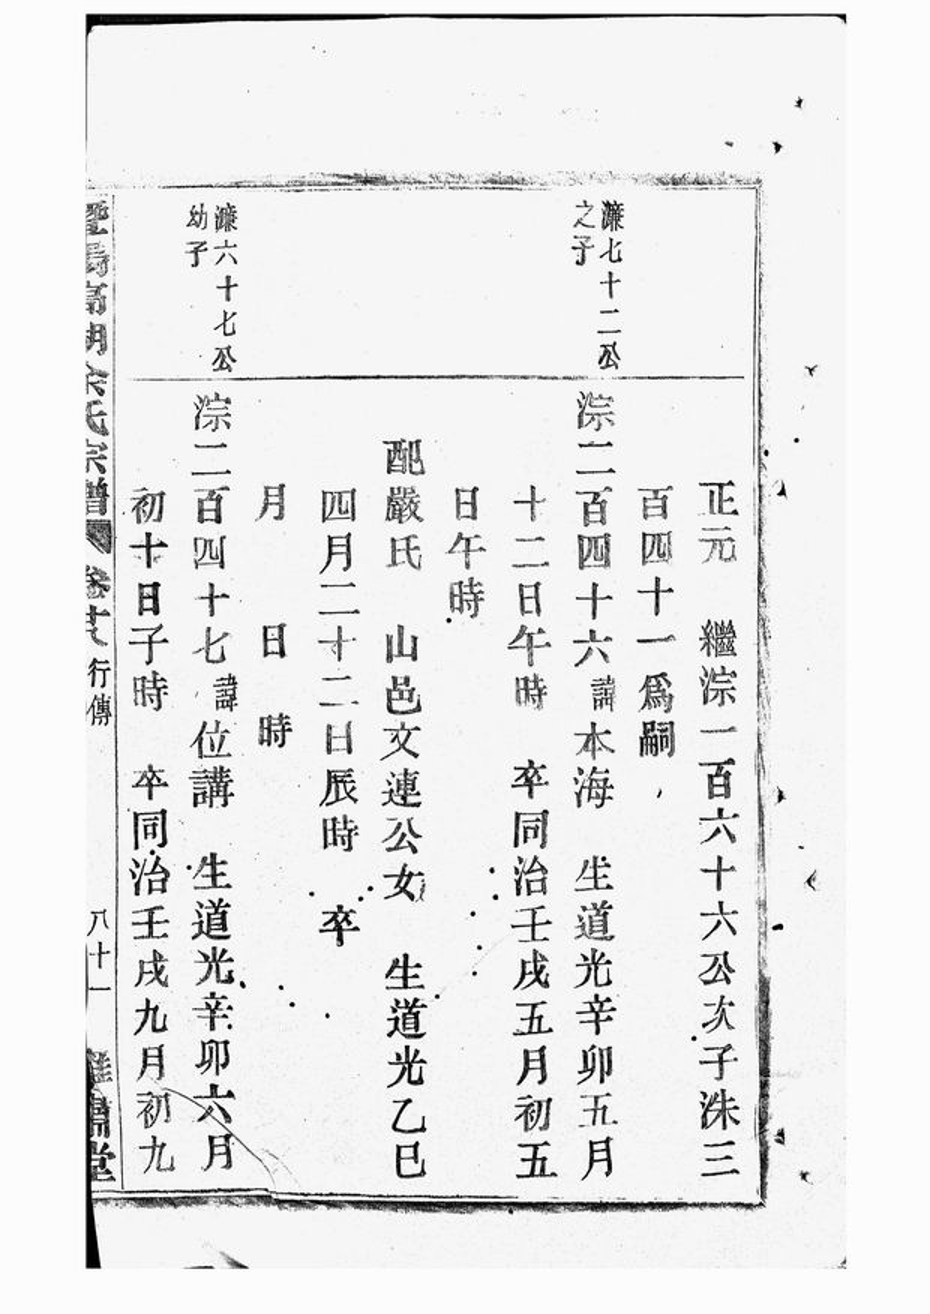 正元 繼淙一百六十六公次子洙三
百四十一爲嗣
濂七十二公
之子
淙二百四十六諱本海 生道光辛卯五月
十二日午時 卒同治壬戌五月初五
日午時
配嚴氏 山邑文連公女 生道光乙巳
四月二十二日辰時 卒
月 日 時
濂六十七公
幼子
淙二百四十七諱位講 生道光辛卯六月
初十日子時 卒同治壬戌九月初九
暨陽高湖余氏宗譜 卷 行傳 八十一 肅堂